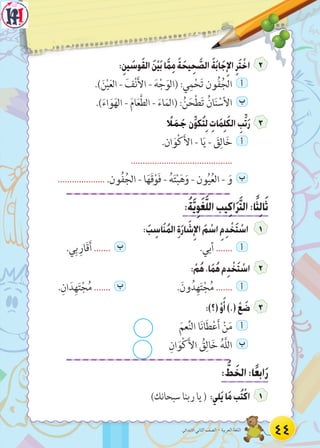 ٢ اخْتَرِ الْإِجَابَةَ الصَّحِيحَةَ مِمَّا بَيْنَ الْقَوْسَيْنِ:
أ الْجُفُونُ تَحْمِي: (الْوَجْهَ - الْأَنْفَ - الْعَيْنَ).
ب الْأَسْنَانُ تَطْحَنُ: (الْمَاءَ - الطَّعَامَ - الْهَوَاءَ).
٣ رَتِّبِ الْكَلِمَاتِ لِتُكَوِّنَ جُمَلًا:
أ خَالِقَ - يَا - الْأَكْوَانِ.
ب وَ - الْعُيُونُ - وَهَيْبَتُهُ - فَوْقَهَا - الْجُفُونُ.
ثَالِثًا: التَّرَاكِيبُ اللُّغَوِيَّةُ:
١ اسْتَخْدِمِ اسْمَ الْإِشَارَةِ الْمُنَاسِبَ:
أ ....... أَبِي. ب ....... أَقَارِبِي.
٢ اسْتَخْدِمْ هُمَا، هُمْ:
أ ....... مُجْتَهِدُونَ. ب ....... مُجْتَهِدَانِ.
٣ ضَعْ (.) أَوْ (؟):
أ مَنْ أَعْطَانَا النِّعَمَ
ب اللهُ خَالِقُ الْأَكْوَانِ
رَابِعًا: الْخَطُّ:
١ اكْتُبْ مَا يَلِي: (يا ربنا سبحانك)
٤٤ اللغة العربية - الصف الثاني الابتدائي